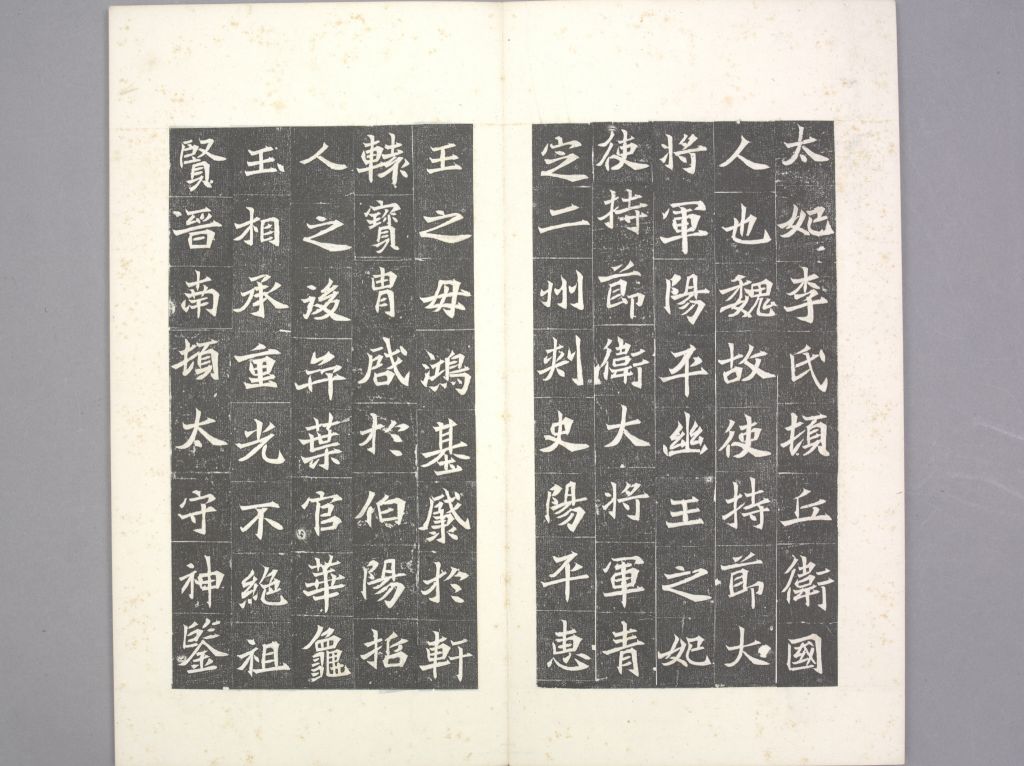 太妃李氏頓丘衛國
人也魏故使持節大
將軍陽平幽王之妃
使持節衛大將軍青
定二州刾史陽平惠
王之母鴻基於軒
轅寶胄啓於伯陽
人之後弈葉官華龜
玉相承重光不絕祖
賢晉南頓太守神鑒